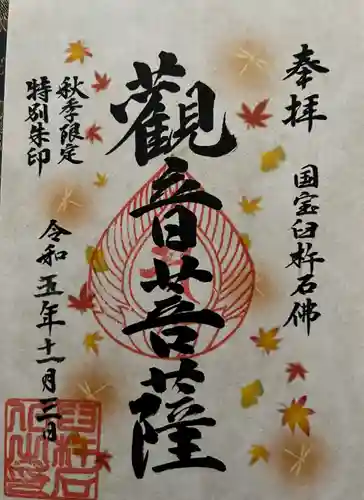 奉拝
国宝臼杵石佛
觀音菩薩
秋季限定
特別朱印
令和五年十一月三日